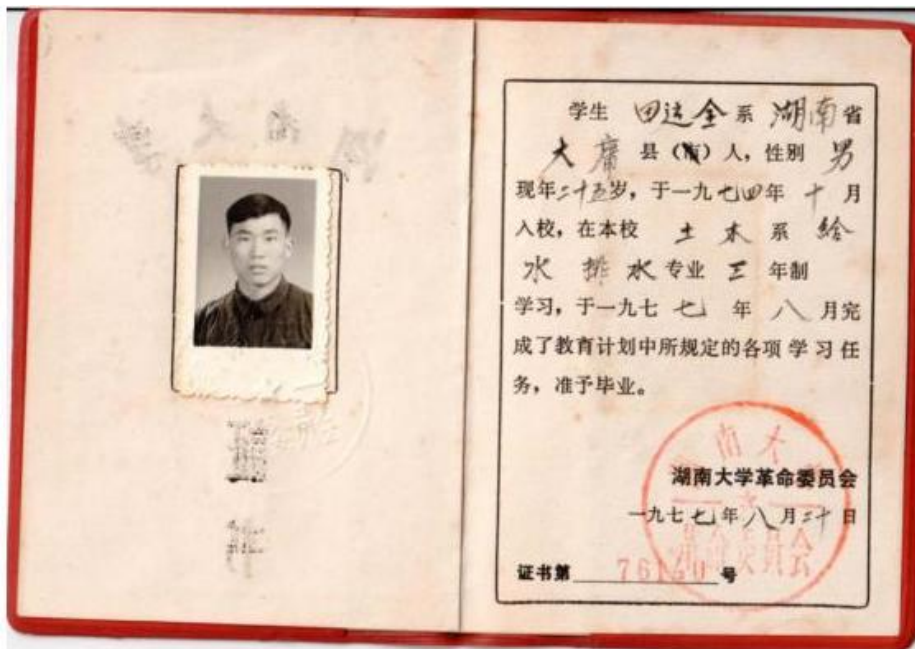 湖南大学
学生 田运全 系 湖南 省
大庸 县（市）人，性别 男
现年二十五岁，于一九七四年 十 月
入校，在本校 土木 系 给
水排水 专业 三 年制
学习，于一九七 七 年 八 月完
成了教育计划中所规定的各项学习任
务，准予毕业。
湖南大学革命委员会
一九七七年八月二十日
证书第 76140 号